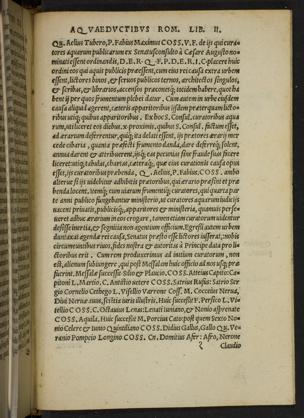 AQVAEDVCTIBVS ROM. LIB. II.
Q. Aelius Tubero, P. Fabius Maximus COSS. V. F. de ijs qui cura-
tores aquarum publicarum ex Senatusconsulto à Caesare Augusto no-
minati essent ordinandis, D. E. R. Q. F. P. D. E. R. I. C. placere huic
ordini eos qui aquis publicis praeessent, cum eius rei causa extra urbem
essent, lictores binos, & seruos publicos ternos, architectos singulos,
& scribas, & librarios, accensos praeconesq; totidem habere, quot ha
bent ij per quos frumentum plebei datur. Cum autem in urbe eiusdem
causa aliquid agerent, caeteris apparitoribus ijsdem praeterquam lictori-
bus uti; quibus apparitoribus. Ex hoc S. Consul. curatoribus aqua
rum, uti liceret eos diebus, x. proximis, quibus S. Consul. factum esset,
ad aerarium deferrentur, quiq; ita delati essent, ijs praetores aerarij mer
cede cibaria, quanta praefecti frumento dando, dare deferreq; solent,
annua darent & attribuerent, ijsq; eas pecunias sine fraude sua facere
liceret utiq; tabulas, chartas, caeteraq;, quae eius curationis causa opus
essent, ijs curatoribus praebenda, Q. Aelius, P. Fabius. COSS. ambo
alterue si ijs uidebitur adhibitis praetoribus, qui aerario praesint ea prae
benda locent, itemq; cum uiarum frumentiq; curatores, qui quarta par
te anni publico fungebantur ministerio, ut curatores aquarum iudicijs
uacent priuatis, publicisq;, apparitores & ministeria, quamuis perse
ueret adhuc aerarium in eos erogare, tamen etiam curatorum uidentur
desisse inertia, & segnitia non agentium officium. Egressis autem urbem
duntaxat agendae rei causa, Senatus praesto esse lictores iusserat, nobis
circumeuntibus riuos, fides nostra & autoritas à Principe data pro li-
ctoribus erit. Cum rem produxerimus ad initium curatorum, non
est, alienum subiungere, qui post Messalam huic officio ad nos usq; prae
fuerint. Messalae successit Silio & Planco, COSS. Atteius Capito: Ca-
pitoni L. Martio, C. Antistio uetere COSS. Tarius Rufus: Tario Ser
gio Cornelio Cethego L. Visellio Varrone Coss. M. Cocceius Nerua,
Diui Neruae auus, scientia iuris illustris. Huic successit V. Persico L. Vi-
tellio COSS. C. Octauius Lenas: Lenati Iuniano, & Nonio Asprenate
COSS. Aquila. Huic successit M. Porcius Cato: post quem Sexto No-
nio Celere & Iunio Quintiliano COSS. Didius Gallus, Gallo Q. Ve-
ranio Pompeio Longino COSS. Cn. Domitius Afer: Afro, Nerone
Claudio